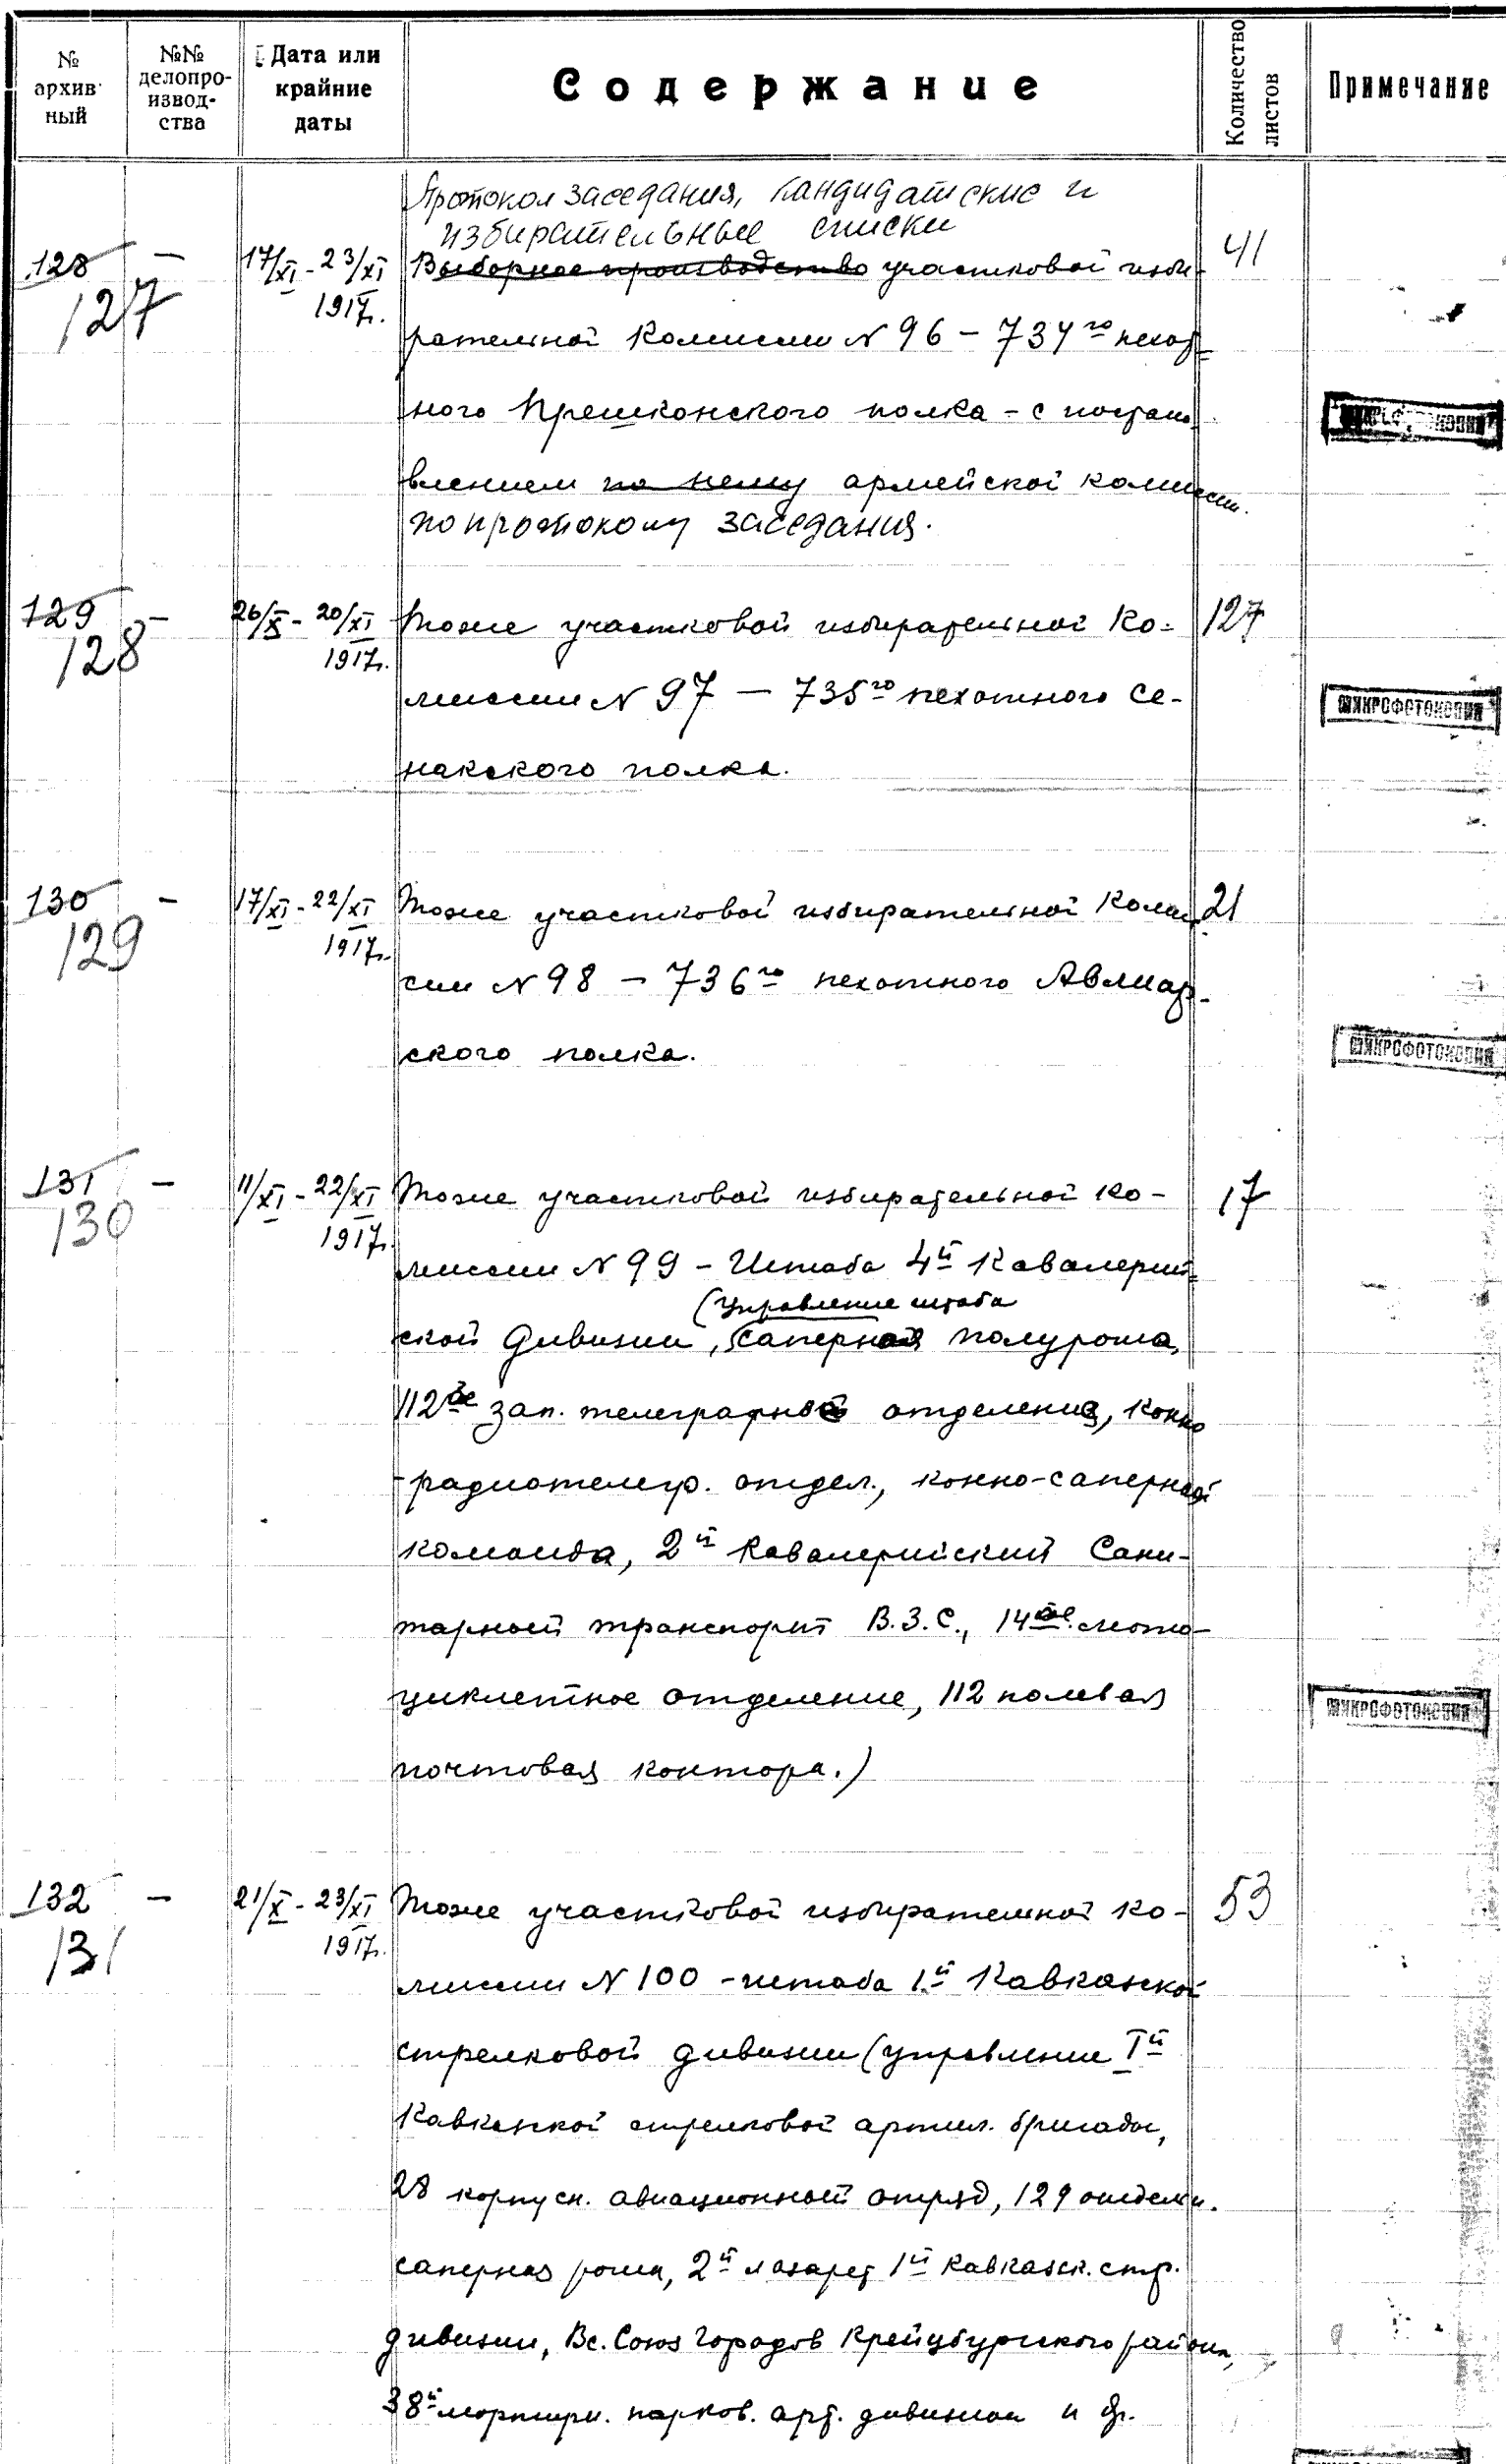 № архивный
№№ делопроизводства
Дата или крайние даты
Содержание
Количество листов
Примечание
Протокол заседания, кандидатские и
избирательные списки
128 — 17/XI - 23/XI Выборное производство участковой изби- 41
127 1917г.
рательной комиссии N 96 – 734го пехот-
ного Прешконского полка – с постано-
влением по нему армейской комиссии.
по протоколу заседания.
129 — 26/X - 20/XI Тоже участковой избирательной ко- 127
128 1917г.
миссии N 97 — 735го пехотного Се-
накского полка.
МИКРОФОТОКОПИЯ
130 — 17/XI - 22/XI Тоже участковой избирательной комис- 21
129 1917г.
сии N 98 – 736го пехотного Авлиар-
ского полка.
МИКРОФОТОКОПИЯ
131 — 11/XI - 22/XI Тоже участковой избирательной ко- 17
130 1917г.
миссии N 99 – Штаба 4й Кавалерий-
(Управление штаба
ской дивизии, саперная полурота,
112ое зап. телеграфное отделение, конно
-радиотелегр. отдел., конно-саперная
команда, 2й Кавалерийский Сани-
тарный транспорт В.З.С., 14ое мото-
циклетное отделение, 112 полевая
почтовая контора.)
МИКРОФОТОКОПИЯ
132 — 21/X - 23/XI Тоже участковой избирательной ко- 53
131 1917г.
миссии N 100 – штаба 1й Кавказской
стрелковой дивизии (управление Iй
Кавказской стрелковой артил. бригады,
28 корпусн. авиационный отряд, 129 отдельн.
саперная рота, 2й лазарет 1й Кавказск. стр.
дивизии, Вс. Союз Городов Крейцбургского района,
38й мортирн. парков. арт. дивизион и др.